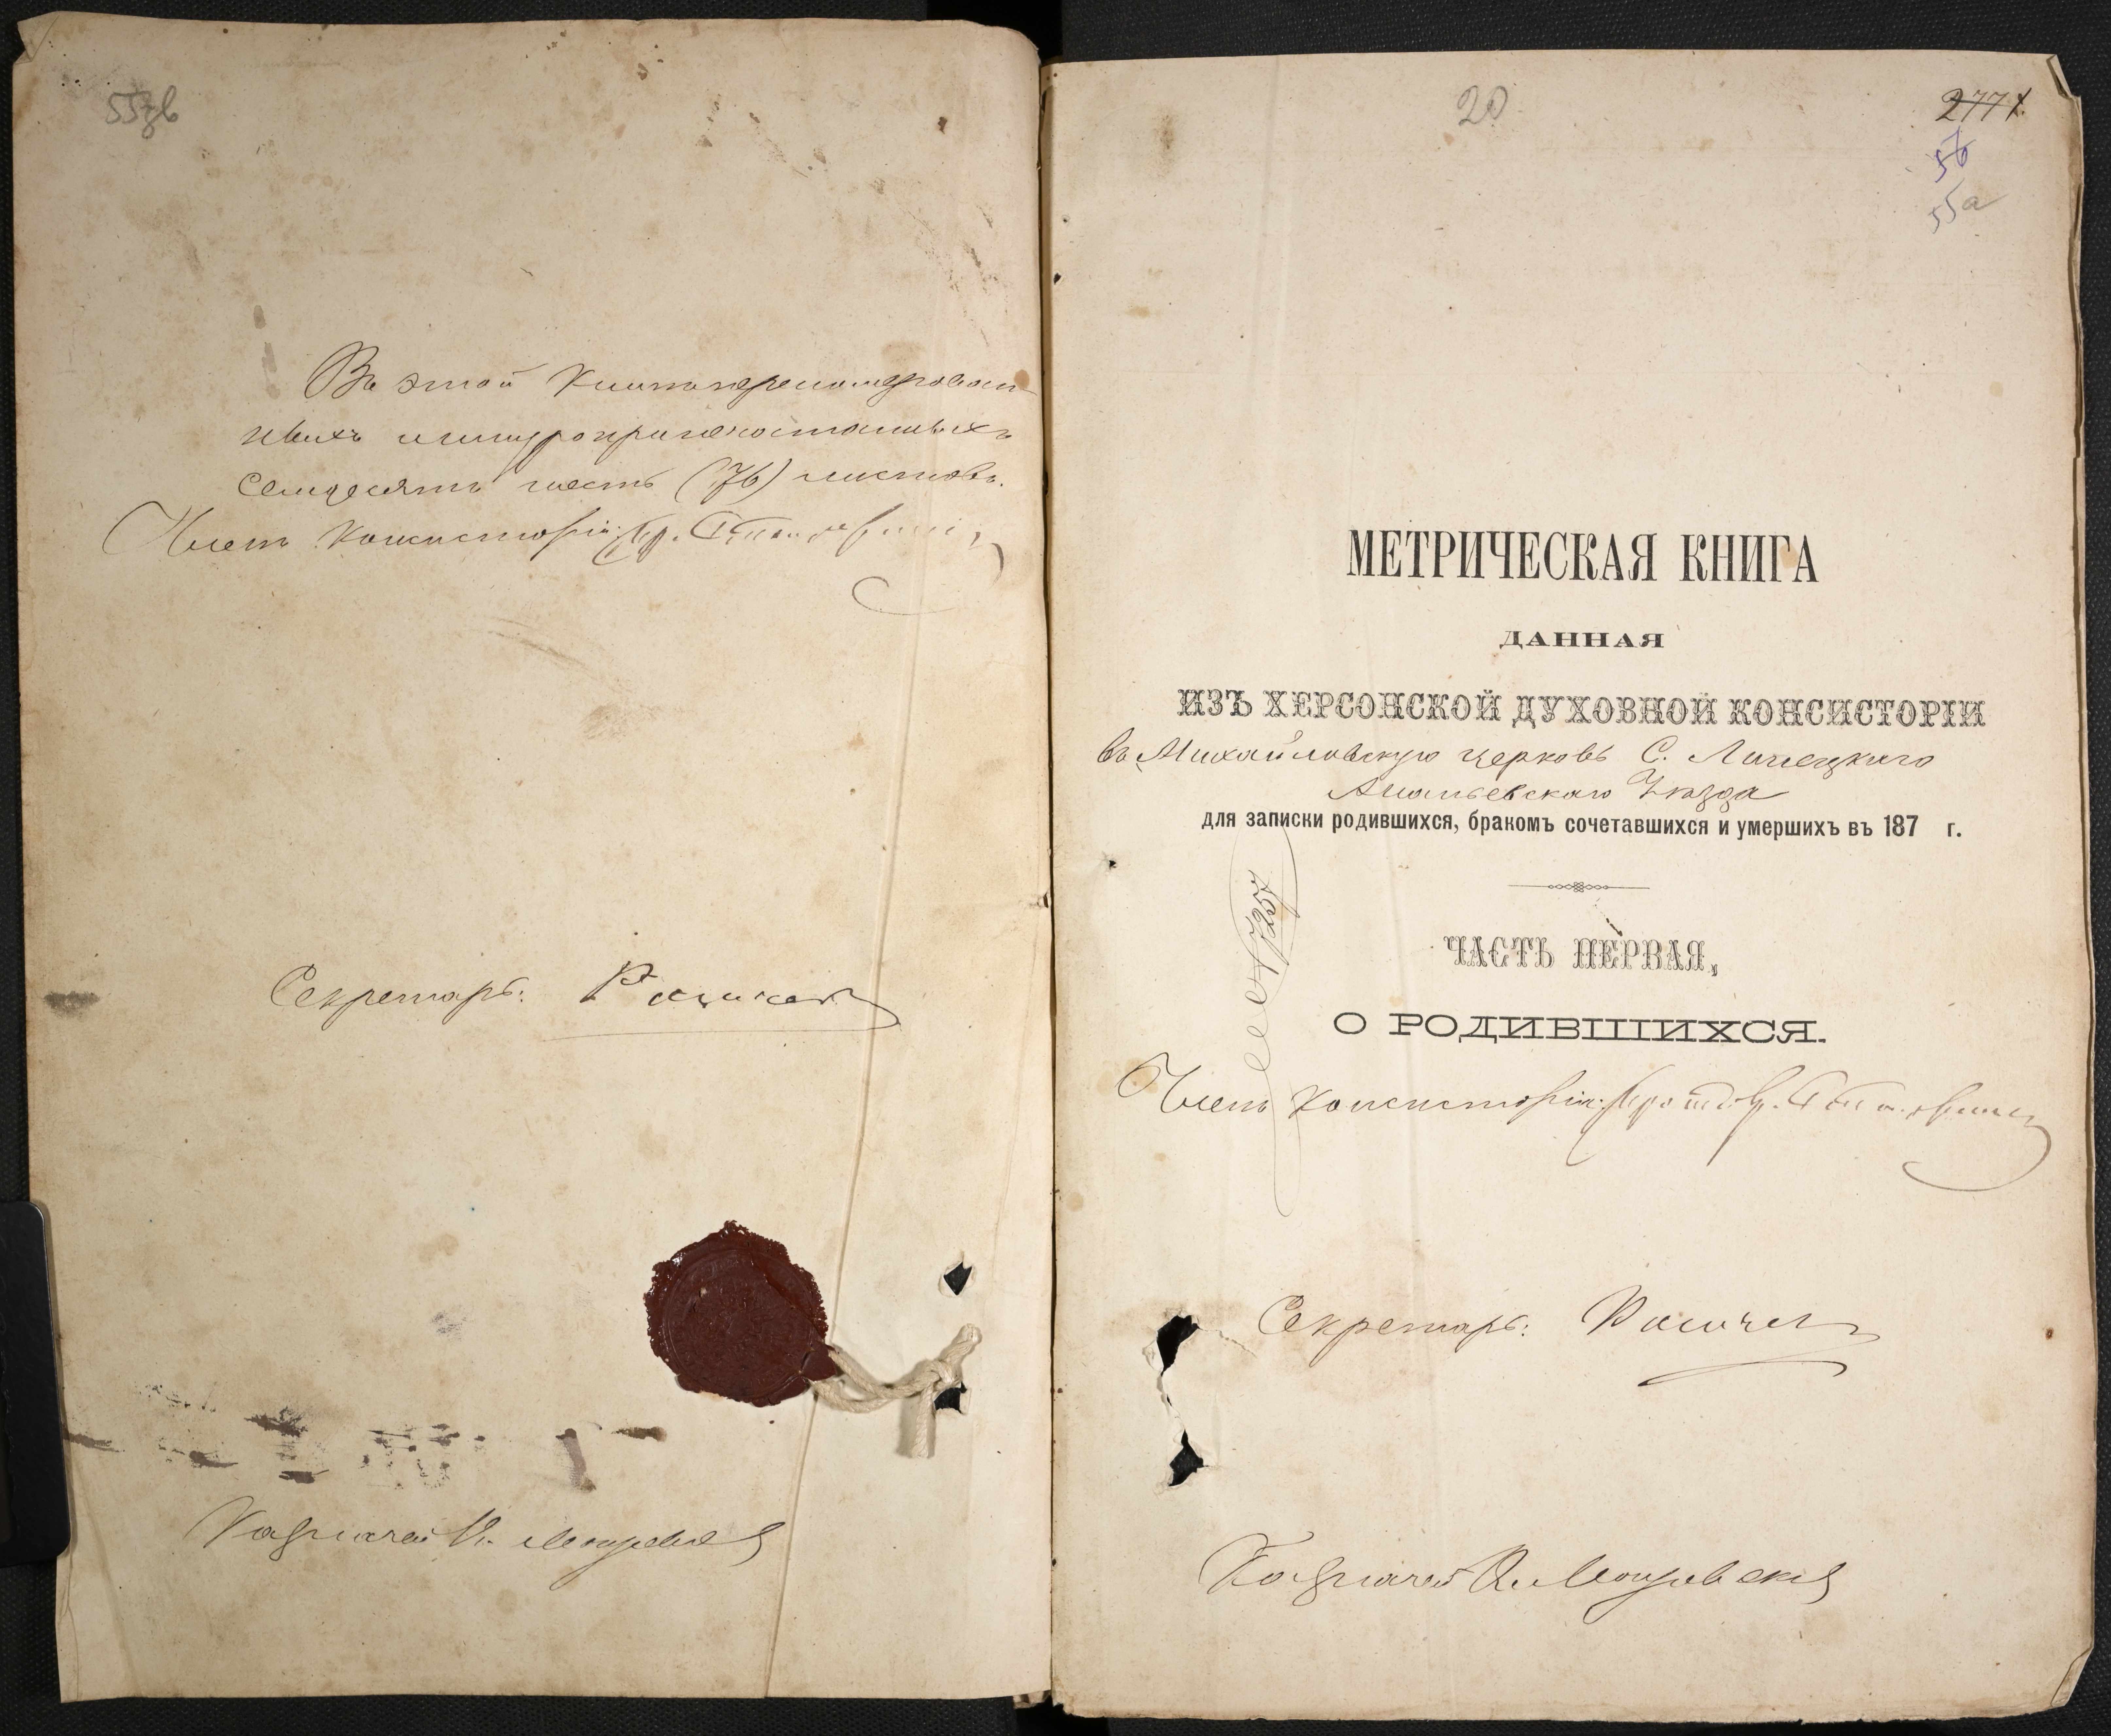 55зв
Въ этой Книге перенумерован
ныхъ шнуроприпечатанныхъ
Семдесятъ шесть (76) листовъ.
Членъ Консисторіи
Секретарь:
Казначей
20
277
56
55а
МЕТРИЧЕСКАЯ КНИГА
ДАННАЯ
ИЗЪ ХЕРСОНСКОЙ ДУХОВНОЙ КОНСИСТОРІИ
въ Михайловскую церковь С. Липецкаго
Ананьевскаго Уѣзда
для записки родившихся, бракомъ сочетавшихся и умершихъ въ 187 г.
ЧАСТЬ ПЕРВАЯ,
О РОДИВШИХСЯ.
Членъ Консисторіи:
Секретарь:
Казначей